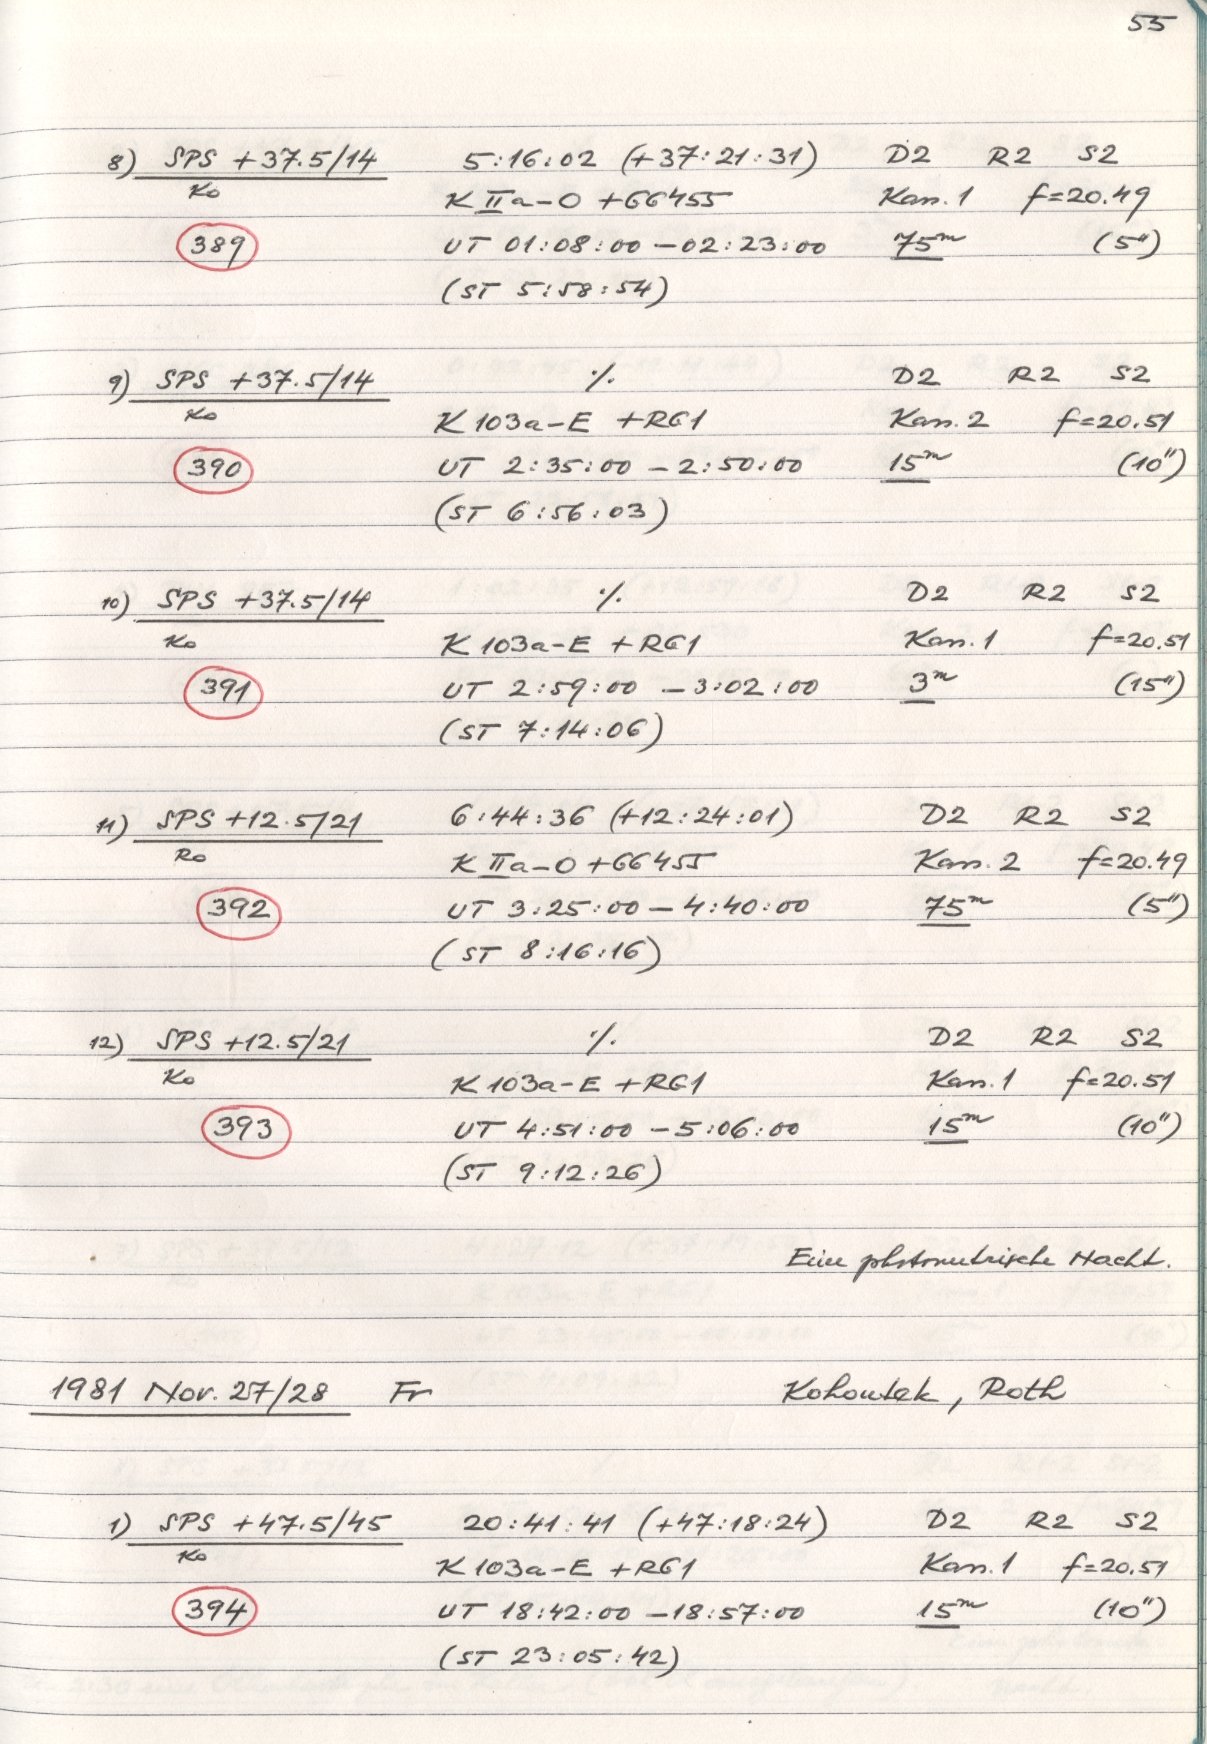 55
8) SPS +37.5/14 5:16:02 (+37:21:31) D2 R2 S2
Ko K IIa-O +GG455 Kas.1 f=20.49
389 UT 01:08:00 - 02:23:00 75m (5")
(ST 5:58:54)
9) SPS +37.5/14 ·/. D2 R2 S2
Ko K 103a-E +RG1 Kas.2 f=20.51
390 UT 2:35:00 - 2:50:00 15m (10")
(ST 6:56:03)
10) SPS +37.5/14 ·/. D2 R2 S2
Ko K 103a-E +RG1 Kas.1 f=20.51
391 UT 2:59:00 - 3:02:00 3m (15")
(ST 7:14:06)
11) SPS +12.5/21 6:44:36 (+12:24:01) D2 R2 S2
Ro K IIa-O +GG455 Kas.2 f=20.49
392 UT 3:25:00 - 4:40:00 75m (5")
(ST 8:16:16)
12) SPS +12.5/21 ·/. D2 R2 S2
Ko K 103a-E +RG1 Kas.1 f=20.51
393 UT 4:51:00 - 5:06:00 15m (10")
(ST 9:12:26)
Eine photometrische Nacht.
1981 Nov. 27/28 Fr Kohoutek, Roth
1) SPS +47.5/45 20:41:41 (+47:18:24) D2 R2 S2
Ko K 103a-E +RG1 Kas.1 f=20.51
394 UT 18:42:00 - 18:57:00 15m (10")
(ST 23:05:42)